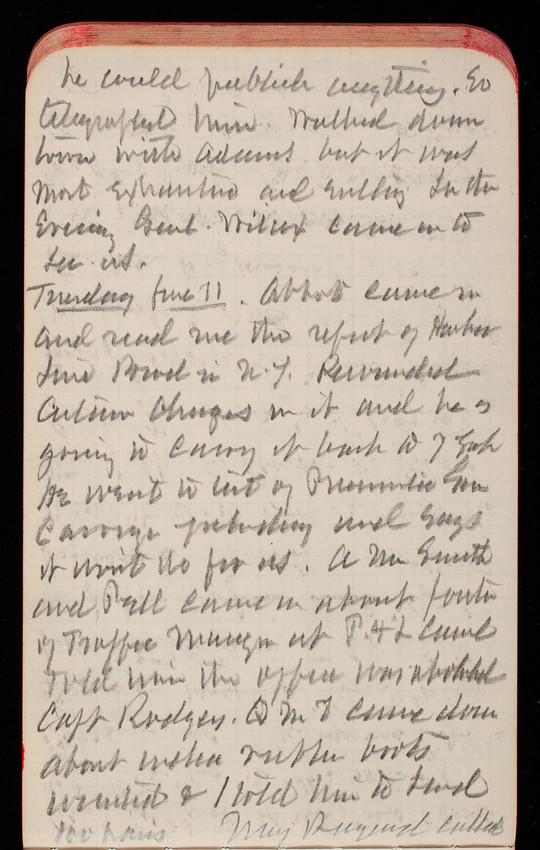 he would publish anything. So
telegraphed him. Walked down
town with Adams but it was
most exhaustive and In the
Evening Genl. Wilcox came in to
see us.
Tuesday June 11. Abbot came in
and read me the report of Harbor
Line Board in N.Y. Recommended
Certain changes in it and he is
going to carry it back to
He went to test of Pneumatic Gun
Carriage yesterday and says
it wont do for us. A Mr Smith
and Pell came in about
of Traffic at P. & L Canal
Told him the office was abolished
Capt Rodgers. Q M D came down
about rubber boots
wanted & I told him to send
two pairs Maj Raymond called